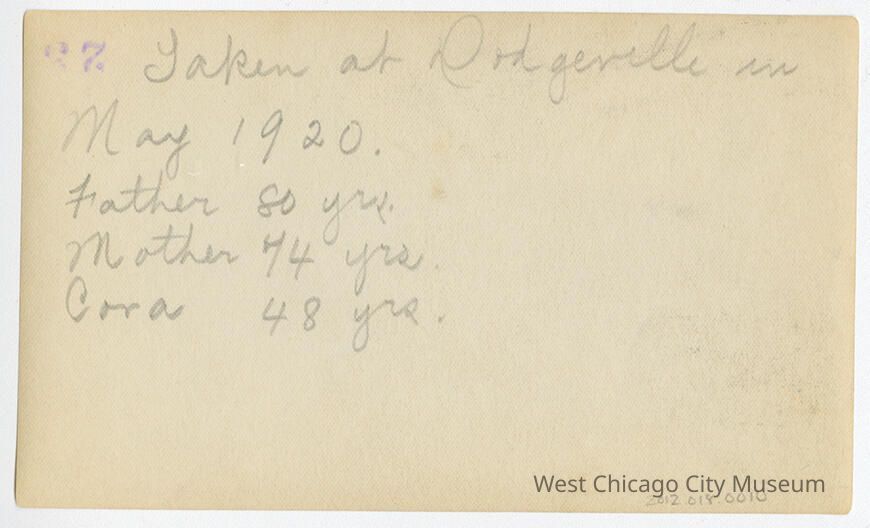 27 Taken at Dodgeville in
May 1920.
Father 80 yrs.
Mother 74 yrs.
Cora 48 yrs.
West Chicago City Museum
2012.018.0010